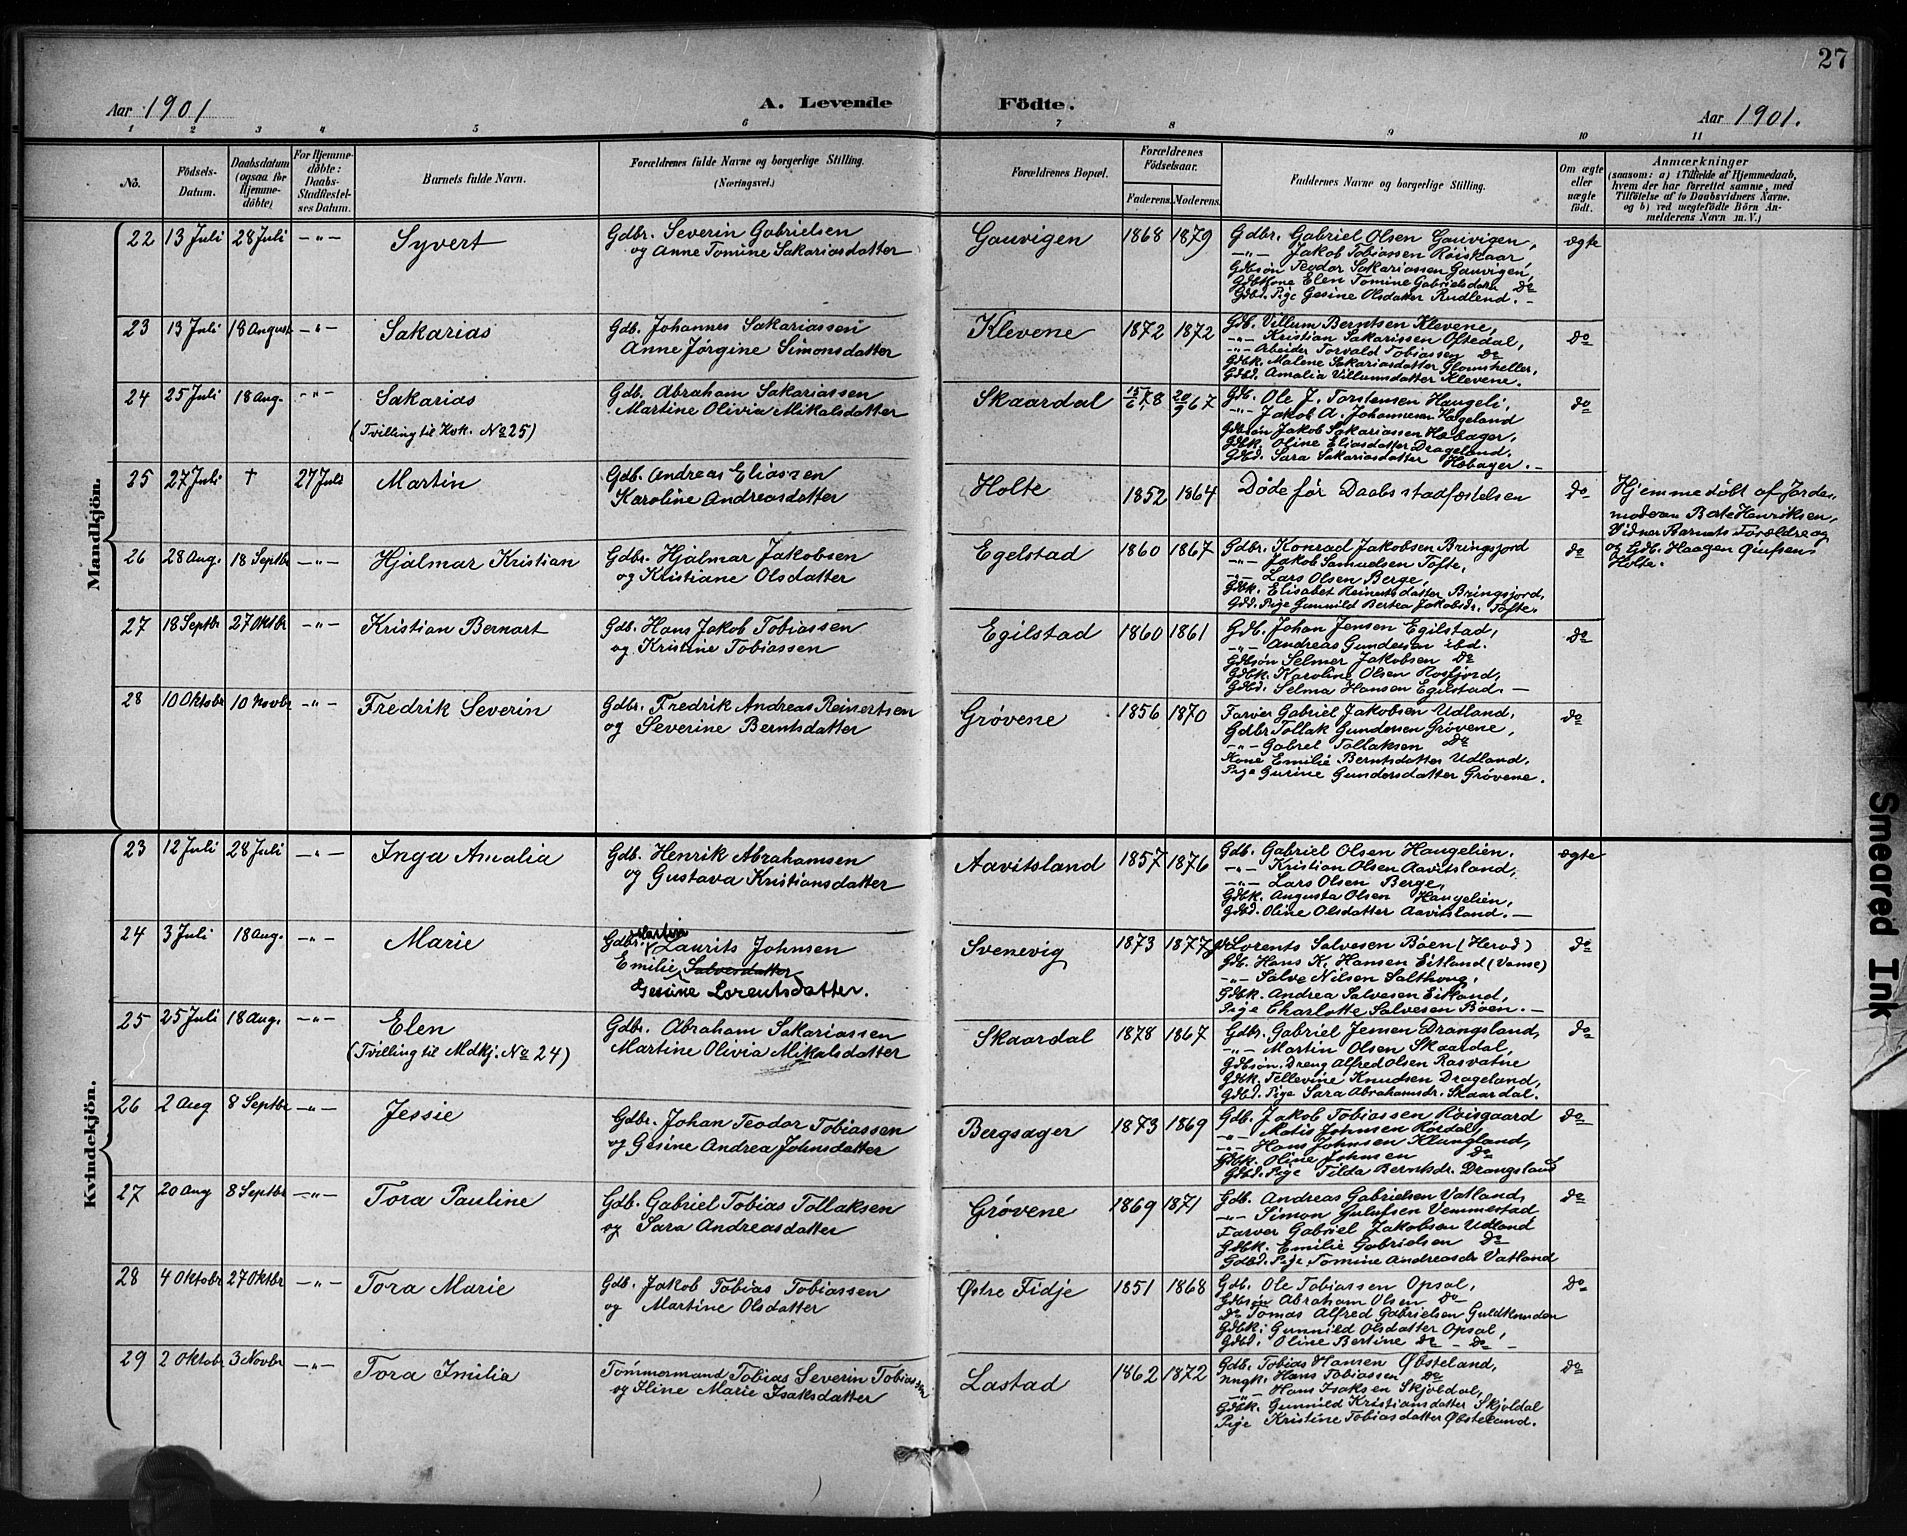 27
Aar 1901
A. Levende Födte.
Aar 1901.
1 2 3 4 5 6 7 8 9 10 11
No.
Födsels-Datum.
Daabsdatum (ogsaa för Hjemmedöbte)
For Hjemmedöbte: Daabs-Stadfestelses Datum.
Barnets fulde Navn.
Forældrenes fulde Navne og borgerlige Stilling.
(Næringsvei.)
Forældrenes Bopæl.
Forældrenes Födselsaar.
Faderens. Moderens.
Faddernes Navne og borgerlige Stilling.
Om ægte eller uægte födt.
Anmærkninger
(saasom: a) i Tilfælde af Hjemmedaab, hvem der har forrettet samme, med Tilföielse af to Daabsvidners Navne. og b) ved uægtefödte Börn Anmelderens Navn m. V.)
Mandkjön.
22 13 Juli 28 Juli -"- Syvert
Gdbr. Severin Gabrielsen
og Anne Tomine Sakariasdatter
Gauvigen 1868 1879
Gdbr. Gabriel Olsen Gauvigen,
-"- Jakob Tobiassen Røiskaar,
Gdbsøn Teodor Sakariassen Gauvigen,
Gdbkone Elen Tomine Gabrielsdatr do
Gdbd. Pige Gesine Olsdatter Rudlend. -
ægte
23 13 Juli 18 August -"- Sakarias
Gdb. Johannes Sakariassen
Anne Jørgine Simonsdatter
Klevene 1872 1872
Gdb. Villum Berntsen Klevene,
-"- Kristian Sakarissen Oftedal,
-"- Arbeider Torvald Tobiassen do
Gdbk. Malene Sakariasdatter Glomsheller,
Gdbd. Amalia Villumsdatter Klevene.
do
24 25 Juli 18 Aug. -"- Sakarias
(Tvilling til Kvk. No 25)
Gdb. Abraham Sakariassen
Martine Olivia Mikalsdatter
Skaardal 15/6 78 20/9 67
Gdb. Ole J. Torstensen Haugeli,
-"- Jakob A. Johannesen Hageland
Gdbsøn Jakob Sakariassen Høbager,
Gdbk. Oline Eliasdatter Drageland.
Gdbd. Sara Sakariasdatter Høbager. -
do
25 27 Juli † 27 Juli Martin
Gdb. Andreas Eliassen
Karoline Andreasdatter
Holte 1852 1864
Døde før Daabsstadfæstelsen
do
Hjemmedøbt af Jorde-
moderen Berte Henriksen,
Vidner Barnets Forældre og
og Gdb. Haagen Øiufsen
Holte.
26 28 Aug. 18 Septbr -"- Hjalmar Kristian
Gdbr. Hjalmar Jakobsen
og Kristiane Olsdatter
Egelstad 1860 1867
Gdbr. Konrad Jakobsen Bringsjord
-"- Jakob Samuelsen Tofte,
-"- Lars Olsen Berge,
Gdbk. Elisabet Reinertsdatter Bringsjord,
Gdd. Pige Gunnild Bertea Jakobsdr. Tofte.
do
27 18 Septbr 27 Oktbr -"- Kristian Bernart
Gdb. Hans Jakob Tobiassen
og Kristine Tobiassen
Egilstad 1860 1861
Gdb. Johan Jensen Egilstad,
-"- Andreas Gundersen ibd.
Gdbsøn Selmer Jakobsen do
Gdbk. Karoline Olsen Rosfjord,
Gdbd. Selma Hansen Egilstad. -
do
28 10 Oktobr 10 Novbr -"- Fredrik Severin
Gdbr. Fredrik Andreas Reinertsen
og Severine Berntsdatter
Grøvene 1856 1870
Farver Gabriel Jakobsen Udland,
Gdbr Tollak Gundersen Grøvene,
-"- Gabriel Tollaksen do
Kone Emilie Berntsdatter Udland,
Pige Gurine Gundersdatter Grøvene.
do
Kvindekjön.
23 12 Juli 28 Juli -"- Inga Amalia
Gdb. Henrik Abrahamsen
og Gustava Kristiansdatter
Aavitsland 1857 1876
Gdb. Gabriel Olsen Haugelien.
-"- Kristian Olsen Aavitsland,
-"- Lars Olsen Berge,
Gdbk. Augusta Olsen Haugelien,
Gdbd. Oline Olsdatter Aavitsland. -
ægte
24 3 Juli 18 Aug. -"- Marie
Gdbr. Martin Laurits Johnsen
Emilie Salvesdatter
Gesine Lorentsdatter.
Svenevig 1873 1877
Lorents Salvesen Bøen (Herod)
Gdb. Hans K. Hansen Eitland (Vanse)
-"- Salve Nilsen Salthong,
Gdbk. Andrea Salvesen Eitland,
Pige Charlotte Salvesen Bøen. -
do
25 25 Juli 18 Aug. -"- Elen
(Tvilling til Mdkj. No 24)
Gdbr. Abraham Sakariassen
Martine Olivia Mikalsdatter
Skaardal 1878 1867
Gdbr. Gabriel Jensen Drangsland,
-"- Martin Olsen Skaardal
Gdbsøn. Dreng Alfred Olsen Rasvatne
Gdbk. Tellevine Knudsen Drageland,
Gdbd. Pige Sara Abrahamsdr. Skaardal.
do
26 2 Aug 8 Septbr -"- Jessie
Gdbr. Johan Teodor Tobiassen
og Gesine Andrea Johnsdatter
Bergsager 1873 1869
Gdb. Jakob Tobiassen Røisgaard
-"- Matis Johnsen Rørdal,
-"- Hans Johnsen Klungland,
Gdbk. Oline Johnsen do
Gdbd. Pige Tilda Berntsdr. Drangsland
do
27 20 Aug 8 Septbr -"- Tora Pauline
Gdb. Gabriel Tobias Tollaksen
og Sara Andreasdatter
Grøvene 1869 1871
Gdb. Andreas Gabrielsen Vatland,
-"- Simon Gulufsen Vemmestad
Farver Gabriel Jakobsen Udland
Gdbk. Emilie Gabrielsen do
Gdbd. Pige Tomine Andreasdr Vatland
do
28 4 Oktobr 27 Oktbr -"- Tora Marie
Gdb. Jakob Tobias Tobiassen
og Martine Olsdatter
Østre Fidje 1851 1868
Gdb. Ole Tobiassen Opsal,
Gdbsøn Abraham Olsen do
do Tomas Alfred Gabrielsen Guldknuden
Gdbk. Gunnild Olsdatter Opsal,
Gdbd. Oline Bertine do - do -
do
29 2 Oktobr 3 Novbr -"- Tora Imilia
Tømmermand Tobias Severin Tobiassen
og Iline Marie Isaksdatter
Lastad 1862 1872
Gdb. Tobias Hansen Øbsteland,
Ungk. Hans Tobiassen do
-"- Hans Isaksen Skjoldal,
Gdbk. Gunnild Kristiansdatter Skjoldal
Pige Kristine Tobiasdatter Øbsteland.
do
Smeared Ink